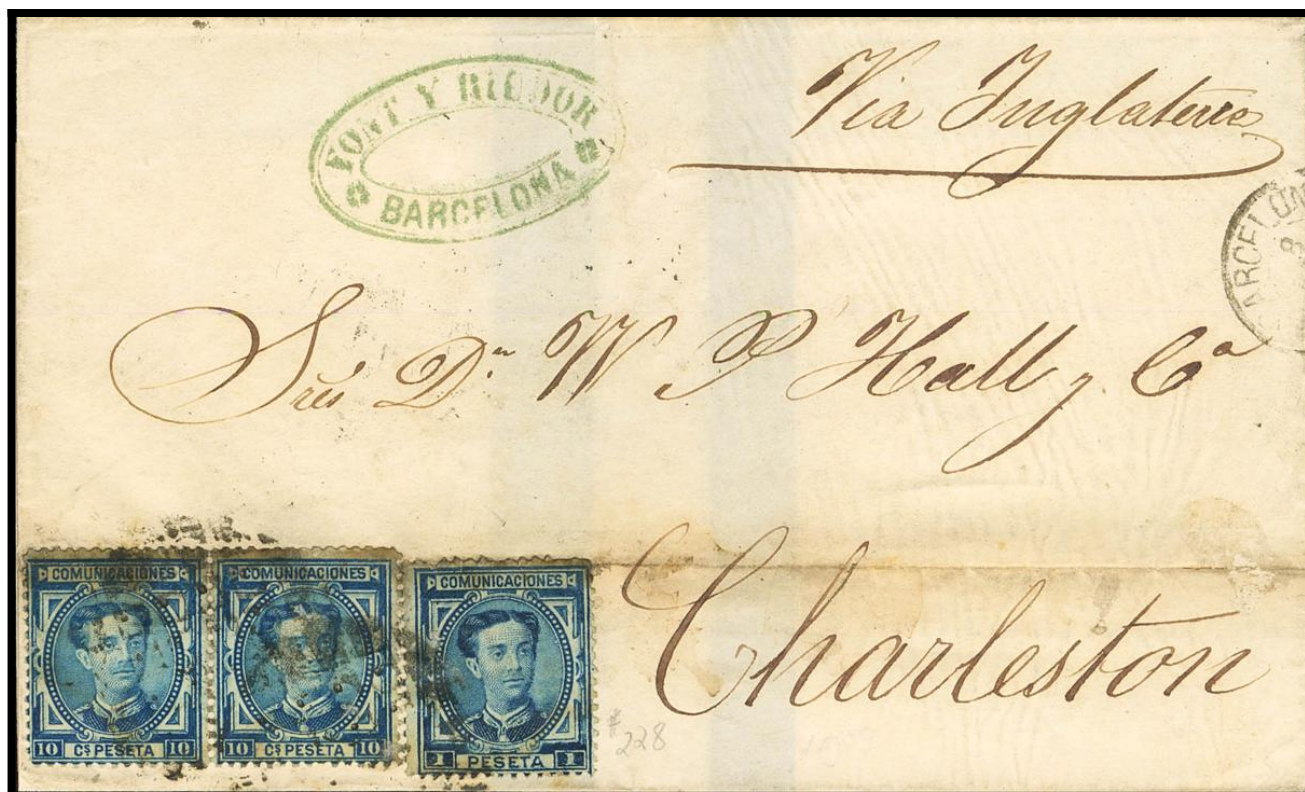 FONT Y RIUDOR
BARCELONA
Via Inglaterra
BARCELON
8
Sres Dn W P Hall y Ca
Charleston
COMUNICACIONES
10 Cs PESETA 10
COMUNICACIONES
10 Cs PESETA 10
COMUNICACIONES
1 PESETA 1
# 228